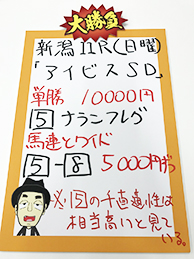 大勝負
新潟11R(日曜)
「アイビスSD」
単勝 10000円
5 ナランフレグ
馬連とワイド
5-8 5000円ずつ
※5の千直適性は
相当高いと見て
いる。